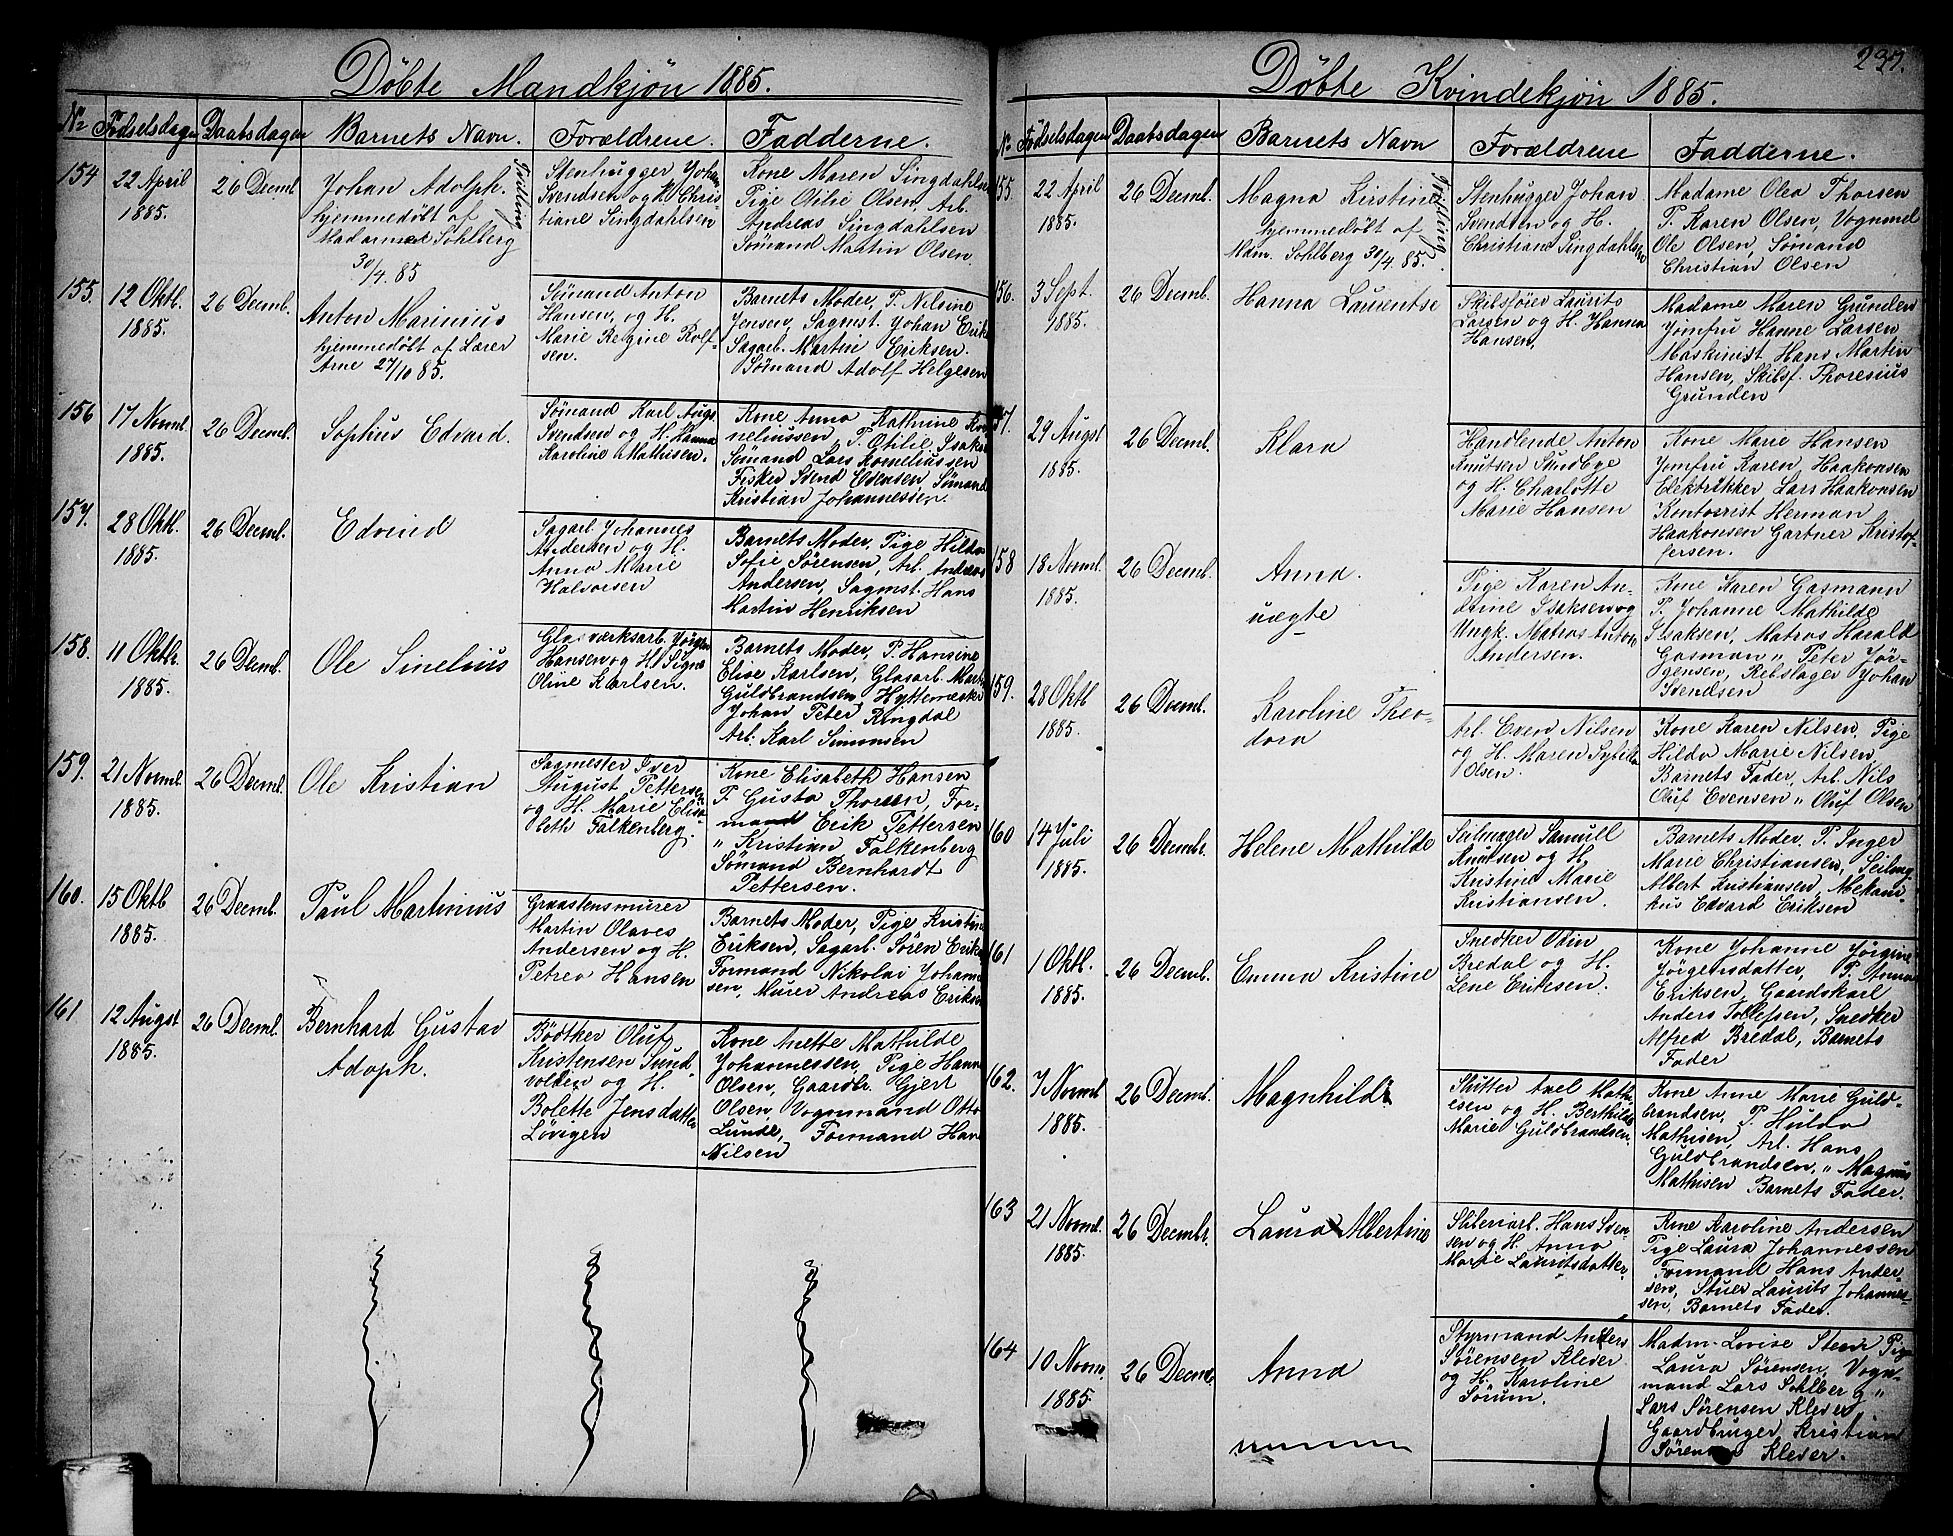 Döbte Mandkjön 1885.
№ Födselsdagen Daabsdagen Barnets Navn. Forældrene. Fadderne.
154 22 April 1885. 26 Decmb.
Johan Adolph. Tvilling
hjemmedöbt af
Madamme Sohlberg
30/4.85
Stenhugger Johan
Svendsen og H. Chris-
tiane Singdahlsen
Kone Maren Singdahlsen
Pige Otilie Olsen, Arb.
Andreas Singdahlsen
Sömand Martin Olsen.
155. 12 Oktb. 1885. 26 Decmb.
Anton Marinius
hjemmedöbt af Lærer
Arne 27/10 85.
Sömand Anton
Hansen, og H.
Marie Regine Rolf-
sen.
Barnets Moder, P. Nilsine
Jensen, Sagmst. Johan Erik
Sagarb. Martin Eriksen.
Sömand Adolf Helgesen
156 17 Novmb. 1885. 26 Decmb.
Sophus Edvard.
Sömand Karl Augs
Svendsen og H. Hanna
Karoline Mathisen.
Kone Anna Kathrine Kor
neliussen, P. Otilie Isaks
Sömand Lars Korneliussen
Fisker Svend Evensen, Sömand
Kristian Johannessen.
157. 28 Oktb. 1885. 26 Decmb.
Edvind
Sagarb. Johannes
Andersen og H.
Anna Marie
Halvorsen
Barnets Moder, Pige Hilda
Sofie Sörensen, Arb. Andreas
Andersen, Sagmst. Hans
Martin Henriksen
158. 11 Oktbr. 1885. 26 Decmb.
Ole Sinelius
Glasværksarb. Jörgen
Hansen og H. Signe
Oline Karlsen.
Barnets Moder, P. Hansine
Elise Karlsen, Glasarb. Mart
Guldbrandsen, Hyttemester
Johan Peter Ringdal
Arb. Karl Simonsen
159. 21 Novmb. 1885. 26 Decmb.
Ole Kristian
Sagmester Iver
August Pettersen
og H. Marie Elisa-
beth Falkenberg.
Kone Elisabeth Hansen
P. Gusta Thorsen, For-
mand Erik Pettersen
" Kristian Falkenberg
Sömand Bernhardt
Pettersen.
160. 15 Oktb 1885. 26 Decmb.
Paul Martinius
Graastensmurer
Martin Olaves
Andersen og H.
Petrea Hansen
Barnets Moder, Pige Kristin
Eriksen, Sagarb. Sören Erik
Formand Nikolai Johann
sen, Murer Andreas Eriks
161 12 Augst 1885. 26 Decmb.
Bernhard Gustav
Adoph.
Bödtker Oluf
Kristensen Sund
volden og H.
Bolette Jensdatter
Lövigen
Kone Anette Mathilde
Johannessen, Pige Hann
Olsen, Gaardbr. Gjert
Olsen, Vognmand Otto
Lunde, Formand Han
Nilsen
237.
Döbte Kvindekjön 1885.
№ Födselsdagen Daabsdagen Barnets Navn Forældrene Fadderne.
155. 22 April 1885. 26 Decmb.
Magna Kirstine Tvilling
hjemmedöbt af
Mam. Sohlberg 30/4.85.
Stenhugger Johan
Svendsen og H.
Christiane Singdahlsen
Madame Olea Thorsen
P. Karen Olsen, Vognmd
Ole Olsen, Sömand
Christian Olsen
156. 3 Sept. 1885. 26 Decmb.
Hanna Laurentse
Skibsförer Laurits
Larsen og H. Hanna
Hansen.
Madame Maren Grunden
Jomfru Hanne Larsen
Maskinist Hans Martin
Hansen, Skibsf. Thoresius
Grunden
157. 29 Augst 1885. 26 Decmb.
Klara
Handlende Anton
Knutsen Sundbye
og H. Charlotte
Marie Hansen
Kone Marie Hansen
Jomfru Karen Haakonsen
Elektrikker Lars Haakonsen
Kontorist Herman
Haakonsen Gartner Kristof-
fersen.
158 18 Novmb. 1885. 26 Decmb.
Anna.
uægte
Pige Karen An-
drine Isaksen og
Ungk. Matros Anton
Andersen.
Kone Karen Gasmann
P. Johanne Mathilde
Isaksen, Matros Harald
Gasman " Peter Jör-
gensen, Rebslager Johan
Svendsen
159. 28 Oktb 1885. 26 Decmb.
Karoline Theo-
dora
Arb. Even Nilsen
og H. Maren Sybille
Olsen.
Kone Karen Nilsen, Pige
Hilda Marie Nilsen,
Barnets Fader, Arb. Nils
Oluf Evensen " Oluf Olsen
160 14 Juli 1885. 26 Decmbr.
Helene Mathilde
Seilmager Samuel
Knutsen og H.
Kristine Marie
Kristiansen.
Barnets Moder, P. Inger
Marie Christiansen, Seilmg.
Albert Kristiansen, Mekani-
kus Edvard Eriksen
161 1 Oktb. 1885. 26 Decmb.
Emma Kristine
Snedker Odin
Bredal og H.
Lene Eriksen.
Kone Johanne Jörgine
Jörgensdatter, P. Anna
Eriksen, Gaardskarl
Anders Tollefsen, Snedker
Alfred Bredal, Barnets
Fader
162. 7 Novmb 1885. 26 Decmb.
Magnhild
Slutter Axel Math-
isen og H. Berthilde
Marie Guldbrandsen.
Kone Anne Marie Guld-
brandsen, P. Hulda
Mathisen, Arb. Hans
Guldbrandsen, " Magnus
Mathisen Barnets Fader.
163 21 Novmb. 1885. 26 Decmbr.
Laura Albertine
Sliberiarb. Hans Sven-
sen og H. Anna
Marie Lauritsdatter.
Kone Karoline Andersen
Pige Laura Johannessen
Formand Hans Ander-
sen, Stuer Laurits Johannes-
sen, Barnets Fader.
164 10 Novm. 1885. 26 Decmb.
Anna
Styrmand Anders
Sörensen Klever
og H. Karoline
Sörum.
Madm. Lovise Steen Pige
Laura Sörensen, Vogn-
mand Lars Sohlberg "
Lars Sörensen Klever
Gaardbruger Kristian
Klever.